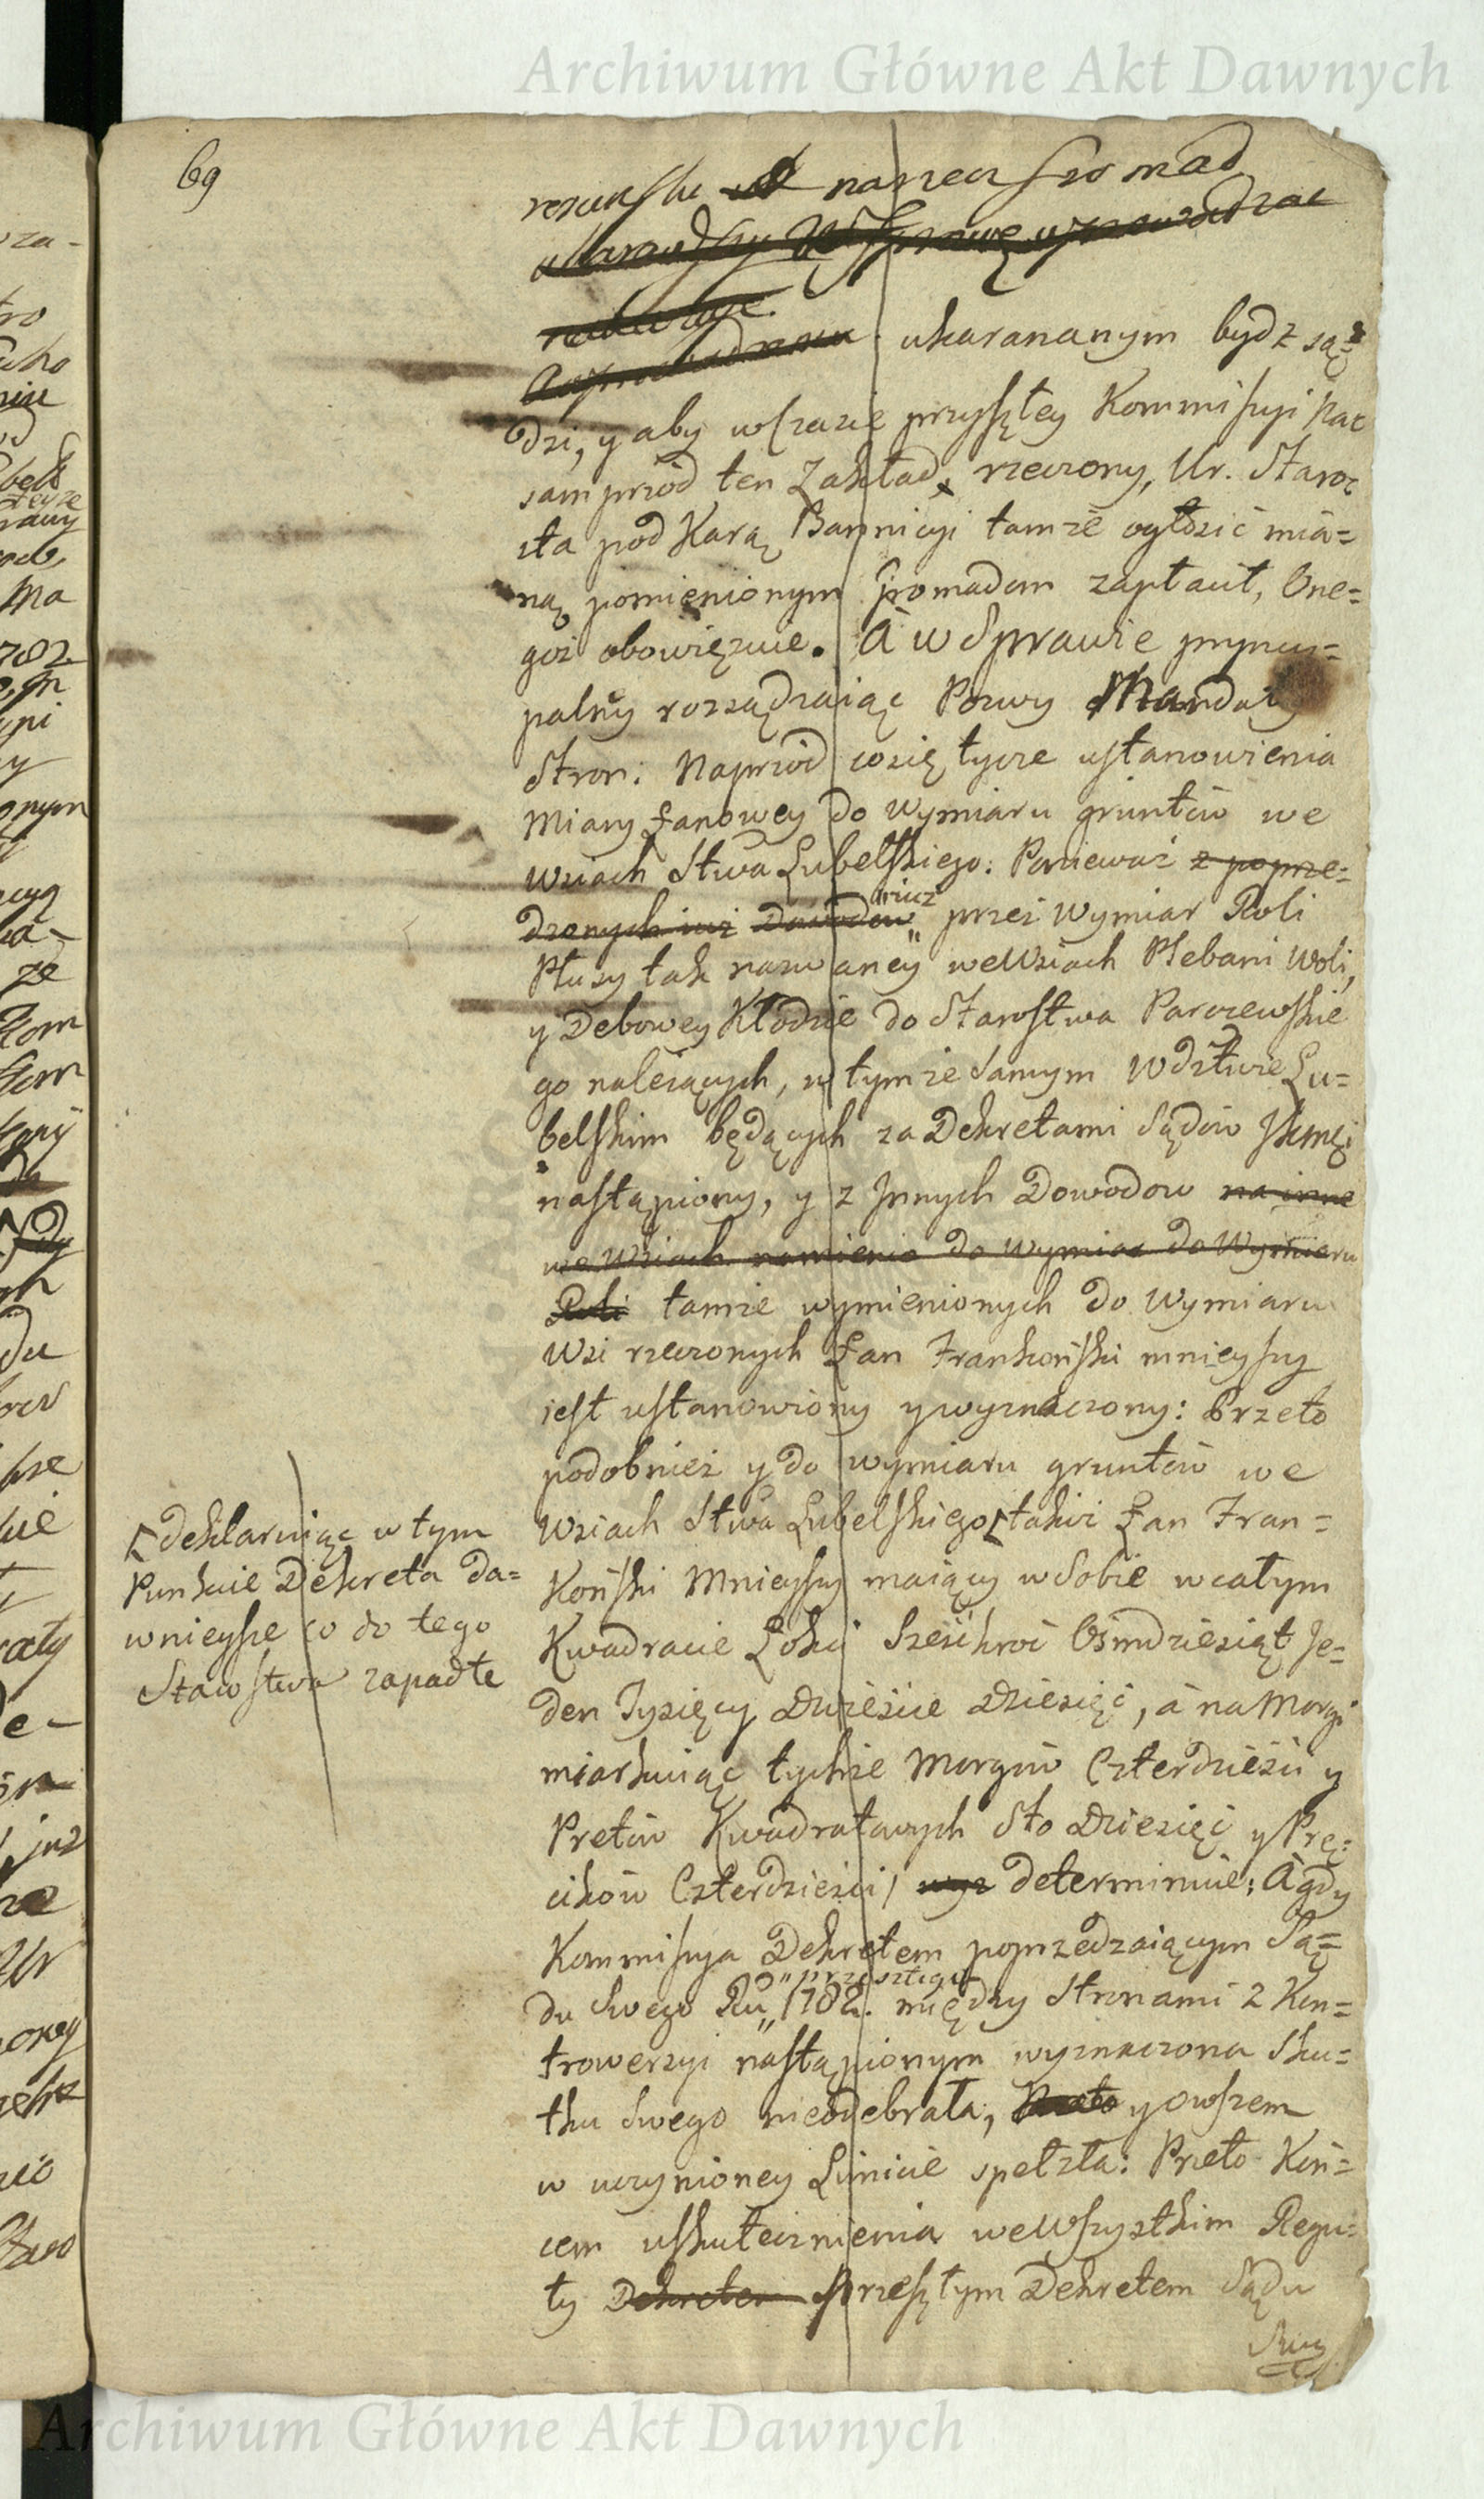 Archiwum Główne Akt Dawnych
69
na rzecz Gromad
ukarananym bydz są=
dzi, y aby wczasie przyszłey Kommissyi Nay
samprzód ten Zakład, rzeczony, Ur. Staros
sta pod Karą Bannicyi tamże ogłosić mia=
ną pomienionym Gromadom zapłacił, One=
goż obowięzuie. A w Sprawie pryncy=
palney rozsądzaiąc Pozwy Mandaty
Stron: Naprzód cosię tycze ustanowienia
Miary Łanowey do Wymiaru gruntów we
Wsiach Stwa Lubelskiego: Ponieważ z poprze=
dzonych iuż Dowodów przez Wymiar Roli
Płusy tak nazwaney we Wsiach Plebani Woli,
y Debowey Kłodzie do Starostwa Parczewskie
go należących, w tymże Samym Wdztwie Lu=
belskim będących za Dekretami Sądów JKMci
nastąpiony, y z Jnnych Dowodow na inne
we Wsiach do wymiar do Wymiaru
Roli tamże wymienionych do Wymiaru
Wsi rzeczonych Łan Frankoński mnieyszy
iest ustanowiony y wyznaczony: Przeto
podobnież y do wymiaru gruntów we
Wsiach Stwa Lubelskiego takiż Łan Fran=
Koński Mnieyszy maiący w Sobie wcałym
Kwadracie Łokci Sześćkroć Osmdziesiąt Je=
den Tysięcy Dwieście Dziesięć, a na Morgi
miarkuiąc tychże Morgów Czterdzieści y
Prętów Kwadratowych Sto Dziesięć y Prę=
cików Czterdzieści / wyz determinuie; A gdy
Kommissya Dekretem poprzedzaiącym Są=
du Swego Ru 1782. przeszłego między Stronami z Kon=
trowersyi nastąpionym wyznaczona Sku=
tku Swego nieodebrała, y owszem
w uczynioney Limicie spełzła: Przeto Koń=
cem uskutecznienia we Wszystkim Regu=
ły Dekretem Przeszłym Dekretem Sądu
Swg
deklaruiąc w tym
Punkcie Dekreta da=
wnieysze co do tego
Starostwa zapadłe
Archiwum Główne Akt Dawnych